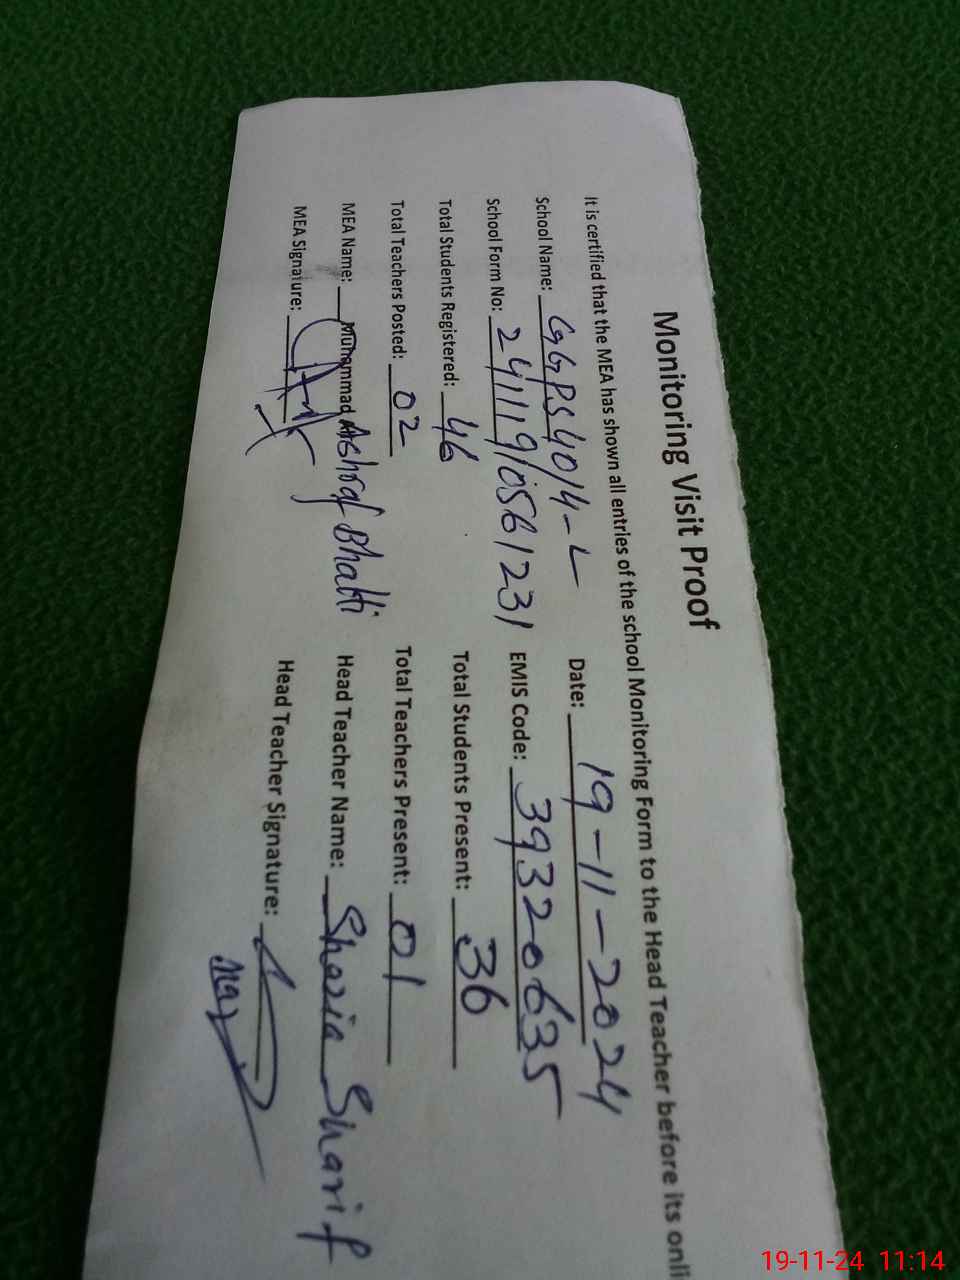 Monitoring Visit Proof
It is certified that the MEA has shown all entries of the school Monitoring Form to the Head Teacher before its onli
School Name: GGPS 40/4-L Date: 19-11-2024
School Form No: 241119/056/231 EMIS Code: 39320635
Total Students Registered: 46 Total Students Present: 36
Total Teachers Posted: 02 Total Teachers Present: 01
MEA Name: Muhammad Ashraf Bhatti Head Teacher Name: Shazia Sharif
MEA Signature: Head Teacher Signature:
19-11-24 11:14